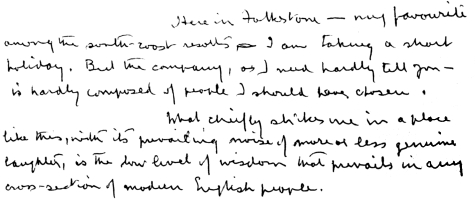 Here in Folkestone — my favourite
among the south-coast resorts — I am taking a short
holiday. But the company, as I need hardly tell you —
is hardly composed of people I should have chosen.
What chiefly strikes me in a place
like this, with its prevailing noise of more or less genuine
laughter, is the low level of wisdom that prevails in any
cross-section of modern English people.